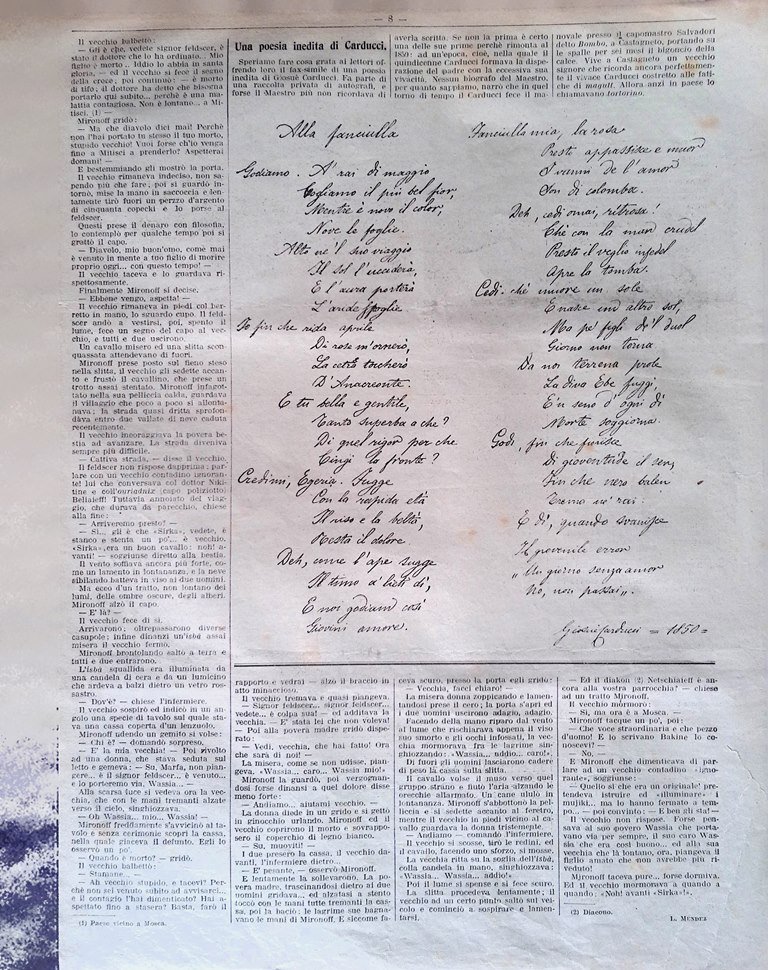 — 8 —
Il vecchio balbettò:
— Gli è che, vedete signor feldscer, è
stato il dottore che lo ha ordinato.. Mio
figlio è morto... Iddio lo abbia in santa
gloria, — ed il vecchio si fece il segno
della croce; poi continuò: — è morto
di tifo; il dottore ha detto che bisogna
portarlo qui subito... perchè è una ma-
lattia contagiosa. Non è lontano... a Mi-
tisci. (1) —
Mironoff gridò:
— Ma che diavolo dici mai! Perchè
non l'hai portato tu stesso il tuo morto,
stupido vecchio! Vuoi forse ch'io venga
fino a Mitisci a prenderlo? Aspetterai
domani! —
E bestemmiando gli mostrò la porta.
Il vecchio rimaneva indeciso, non sa-
pendo più che fare; poi si guardò in-
torno, mise la mano in saccoccia e len-
tamente tirò fuori un pezzo d'argento
di cinquanta copecki e lo porse al
feldscer.
Questi prese il denaro con filosofia,
lo contemplò per qualche tempo poi si
grattò il capo.
— Diavolo, mio buon'uomo, come mai
è venuto in mente a tuo figlio di morire
proprio oggi... con questo tempo! —
Il vecchio taceva e lo guardava ri-
spettosamente.
Finalmente Mironoff si decise.
— Ebbene vengo, aspetta! —
Il vecchio rimaneva in piedi col ber-
retto in mano, lo sguardo cupo. Il feld-
scer andò a vestirsi, poi, spento il
lume, fece un segno del capo al vec-
chio, e tutti e due uscirono.
Un cavallo misero ed una slitta scon-
quassata attendevano di fuori.
Mironoff prese posto sul fieno steso
nella slitta, il vecchio gli sedette accan-
to e frustò il cavallino, che prese un
trotto assai stentato. Mironoff infagot-
tato nella sua pelliccia calda, guardava
il villaggio che poco a poco si allonta-
nava: la strada quasi dritta sprofon-
dava entro due vallate di neve caduta
recentemente.
Il vecchio incoraggiava la povera be-
stia ad avanzare. La strada diveniva
sempre più difficile.
— Cattiva strada, — disse il vecchio.
Il feldscer non rispose dapprima: par-
lare con un vecchio contadino ignoran-
te! lui che conversava col dottor Niki-
tine e coll'ouriadniz (capo poliziotto)
Beliaieff! Tuttavia annoiato del viag-
gio, che durava da parecchio, chiese
alla fine:
— Arriveremo presto? —
— Sì... gli è che «Sirka», vedete, è
stanco e stenta un po'... è vecchio.
«Sirka», era un buon cavallo: noh! a-
vanti! — soggiunse diretto alla bestia.
Il vento soffiava ancora più forte, co-
me un lamento in lontananza, e la neve
sibilando batteva in viso ai due uomini.
Ma ecco d'un tratto, non lontano dei
lumi, delle ombre oscure, degli alberi.
Mironoff alzò il capo.
— E' là? —
Il vecchio fece di sì.
Arrivarono: oltrepassarono diverse
casupole; infine dinanzi un'isbà assai
misera il vecchio fermò.
Mironoff brontolando saltò a terra e
tutti e due entrarono.
L'isbà squallida era illuminata da
una candela di cera e da un lumicino
che ardeva a balzi dietro un vetro ros-
sastro.
— Dov'è? — chiese l'infermiere.
Il vecchio sospirò ed indicò in un an-
golo una specie di tavolo sul quale sta-
va una cassa coperta d'un lenzuolo.
Mironoff udendo un gemito si volse:
— Chi è? — domandò sorpreso.
— E' la mia vecchia! — Poi rivolto
ad una donna, che stava seduta sul
letto e gemeva: — Su, Marfa, non pian-
gere... è il signor feldscer, è venuto...
e lo porteremo via, Wassia... —
Alla scarsa luce si vedeva ora la vec-
chia, che con le mani tremanti alzate
verso il cielo, singhiozzava.
— Oh Wassia... mio... Wassia! —
Mironoff freddamente s'avvicinò al ta-
volo e senza cerimonie scoprì la cassa,
nella quale giaceva il defunto. Egli lo
osservò un po'.
— Quando è morto? — gridò.
Il vecchio balbettò:
— Stamane... —
— Ah vecchio stupido, e tacevi! Per-
chè non sei venuto subito ad avvisarci...
e il contagio l'hai dimenticato? Hai a-
spettato fino a stasera? Basta, farò il
(1) Paese vicino a Mosca.
Una poesia inedita di Carducci.
Speriamo fare cosa grata ai lettori of-
frendo loro il fax-simile di una poesia
inedita di Giosuè Carducci. Fa parte di
una raccolta privata di autografi, e
forse il Maestro più non ricordava di
averla scritta. Se non la prima è certo
una delle sue prime perchè rimonta al
1850: ad un'epoca, cioè, nella quale il
quindicenne Carducci formava la dispe-
razione del padre con la eccessiva sua
vivacità. Nessun biografo del Maestro,
per quanto sappiamo, narrò che in quel
torno di tempo il Carducci fece il ma-
novale presso il capomastro Salvadori
detto Bombo, a Castagneto, portando su
le spalle per sei mesi il bigoncio della
calce. Vive a Castagneto un vecchio
signore che ricorda ancora perfettamen-
te il vivace Carducci costretto alle fati-
che di magatt. Allora anzi in paese lo
chiamavano tortorino.
Alla fanciulla
Godiamo. A' rai di maggio
Godiamo il più bel fior,
Mentre è novo il color,
Nove le foglie.
Alto ne'l suo viaggio
Il sol l'ucciderà,
E l'aura porterà
L'aride spoglie.
Io fin che rida aprile
Di rose m'ornerò,
La cetra toccherò
D'Anacreonte.
E tu bella e gentile,
Tanto superba a che?
Di quel rigor per che
Cingi la fronte?
Credimi, Egeria. Fugge
Con la rapida età
Il riso e la beltà,
Resta il dolore
Deh, come l'ape sugge
Il timo a' lieti dì,
E noi godiam così
Giovini amore.
Fanciulla mia, la rosa
Presto appassisce e muor
I vanni de l'amor
Son di colomba.
Deh, cedi omai, ritrosa!
Chè con la man crudel
Presto il veglio infedel
Apre la tomba.
Cedi. chè muore un sole
E nasce un altro sol,
Ma pe' figli de'l duol
Giorno non torna
Da noi terrena prole
La diva Ebe fuggì,
E in seno d'ogni dì
Morte soggiorna.
Godi, fin che fiorisce
Di gioventude il sen,
Fin che nero balen
Trema ne' rai.
E dì, quando svanisce
Il giovenile error
„ Un giorno senza amor
No, non passai „.
Giosuè Carducci = 1850 =
rapporto e vedrai — alzò il braccio in
atto minaccioso.
Il vecchio tremava e quasi piangeva.
— Signor feldscer... signor feldscer...
vedete... è colpa sua! — ed additava la
vecchia. — E' stata lei che non voleva!
— Poi alla povera madre gridò dispe-
rato:
— Vedi, vecchia, che hai fatto! Ora
che sarà di noi! —
La misera, come se non udisse, pian-
geva. «Wassia... caro... Wassia mio!»
Mironoff la guardò, poi vergognan-
dosi forse dinanzi a quel dolore disse
meno forte:
— Andiamo... aiutami vecchio. —
La donna diede in un grido e si gettò
in ginocchio urlando. Mironoff ed il
vecchio coprirono il morto e sovrappo-
sero il coperchio di legno bianco.
— Su, muoviti! —
I due presero la cassa, il vecchio da-
vanti, l'infermiere dietro...
— E' pesante, — osservò Mironoff.
E lentamente la sollevarono. E La po-
vera madre, trascinandosi dietro ai due
uomini gridava... ed alzatasi a stento
toccò con le mani tutte tremanti la cas-
sa, poi la baciò: le lagrime sue bagna-
vano le mani di Mironoff. E siccome fa-
ceva scuro, presso la porta egli gridò:
— Vecchia, facci chiaro! —
La misera donna zoppicando e lamen-
tandosi prese il cero; la porta s'aprì ed
i due uomini uscirono adagio, adagio.
Facendo della mano riparo dal vento
al lume che rischiarava appena il viso
suo smorto e gli occhi infossati, la vec-
chia mormorava fra le lagrime sin-
ghiozzando: «Wassia... addio... caro!».
Di fuori gli uomini lasciarono cadere
di peso la cassa sulla slitta.
Il cavallo volse il muso verso quel
gruppo strano e fiutò l'aria alzando le
orecchie allarmato. Un cane ululò in
lontananza. Mironoff s'abbottonò la pel-
liccia e si sedette accanto al feretro,
mentre il vecchio in piedi vicino al ca-
vallo guardava la donna tristemente.
— Andiamo — comandò l'infermiere.
Il vecchio si scosse, tirò le redini, ed
il cavallo, facendo uno sforzo, si mosse.
La vecchia ritta su la soglia dell'isbà,
colla candela in mano, singhiozzava:
«Wassia... Wassia... addio!»
Poi il lume si spense e si fece scuro.
La slitta procedeva lentamente; il
vecchio ad un certo punto saltò sul vei-
colo e cominciò a sospirare e lamen-
tarsi.
— Ed il diakon (2) Netschiateff è an-
cora alla vostra parrocchia? — chiese
ad un tratto Mironoff.
Il vecchio mormorò:
— Sì, ma ora è a Mosca. —
Mironoff tacque un po', poi:
— Che voce straordinaria e che pezzo
d'uomo! E lo scrivano Bakine lo co-
noscevi? —
— No. —
E Mironoff che dimenticava di par-
lare ad un vecchio contadino «igno-
rante», soggiunse:
— Quello sì che era un originale! pre-
tendeva istruire ed «illuminare» i
mujiki... ma lo hanno fermato a tem-
po... — poi convinto: — E ben gli sta! —
Il vecchio non rispose. Forse pen-
sava al suo povero Wassia che porta-
vano via per sempre, il suo caro Was-
sia che era così buono... ed alla sua
vecchia che là lontano, ora, piangeva il
figlio amato che non avrebbe più ri-
veduto!
Mironoff taceva pure... forse dormiva.
Ed il vecchio mormorava a quando a
quando: «Noh! avanti «Sirka»!».
(2) Diacono.
L. MUNDEZ